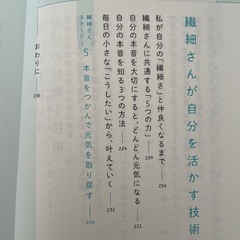 繊細さんが自分を活かす技術
私が自分の「繊細さ」と仲良くなるまで 204
繊細さんに共通する「5つの力」 209
自分の本音を大切にすると、どんどん元気になる 221
自分の本音を知る3つの方法 224
毎日の小さな「こうしたい」から、叶えていく 232
繊細さんストーリー 5 本音をつかんで元気を取り戻す 234
おわりに 238